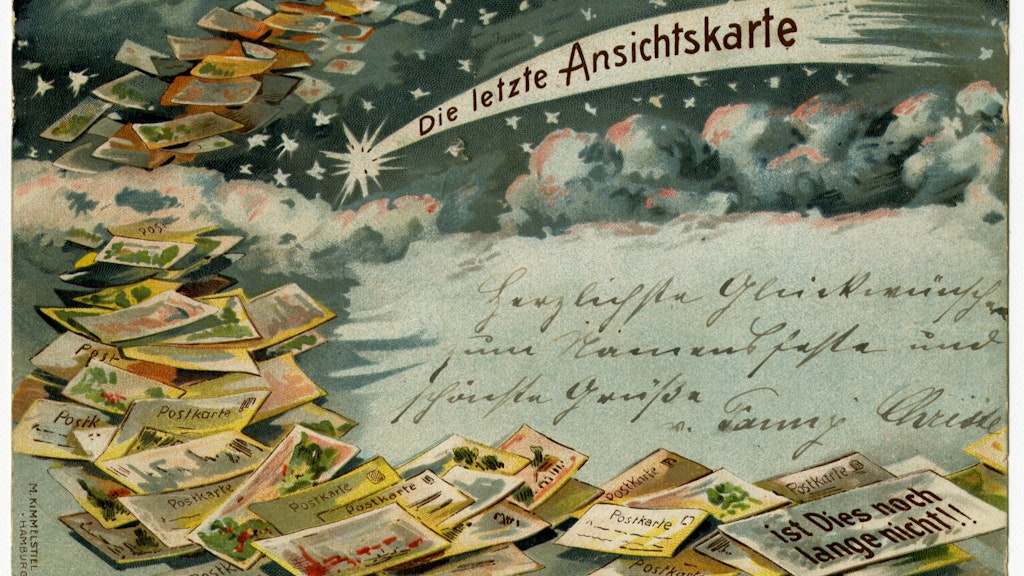 Die letzte Ansichtskarte
Postk
Herzlichste Glückwünsche
zum Namensfeste und
schönste Grüße
v. Fanny
Post
Postk
Postkarte
Postkarte
Postkarte
Postkarte
Postkarte
Postkarte
Postkarte
Postkarte
Postk
ist Dies noch
lange nicht!!
M. KIMMELSTIEL
HAMBURG